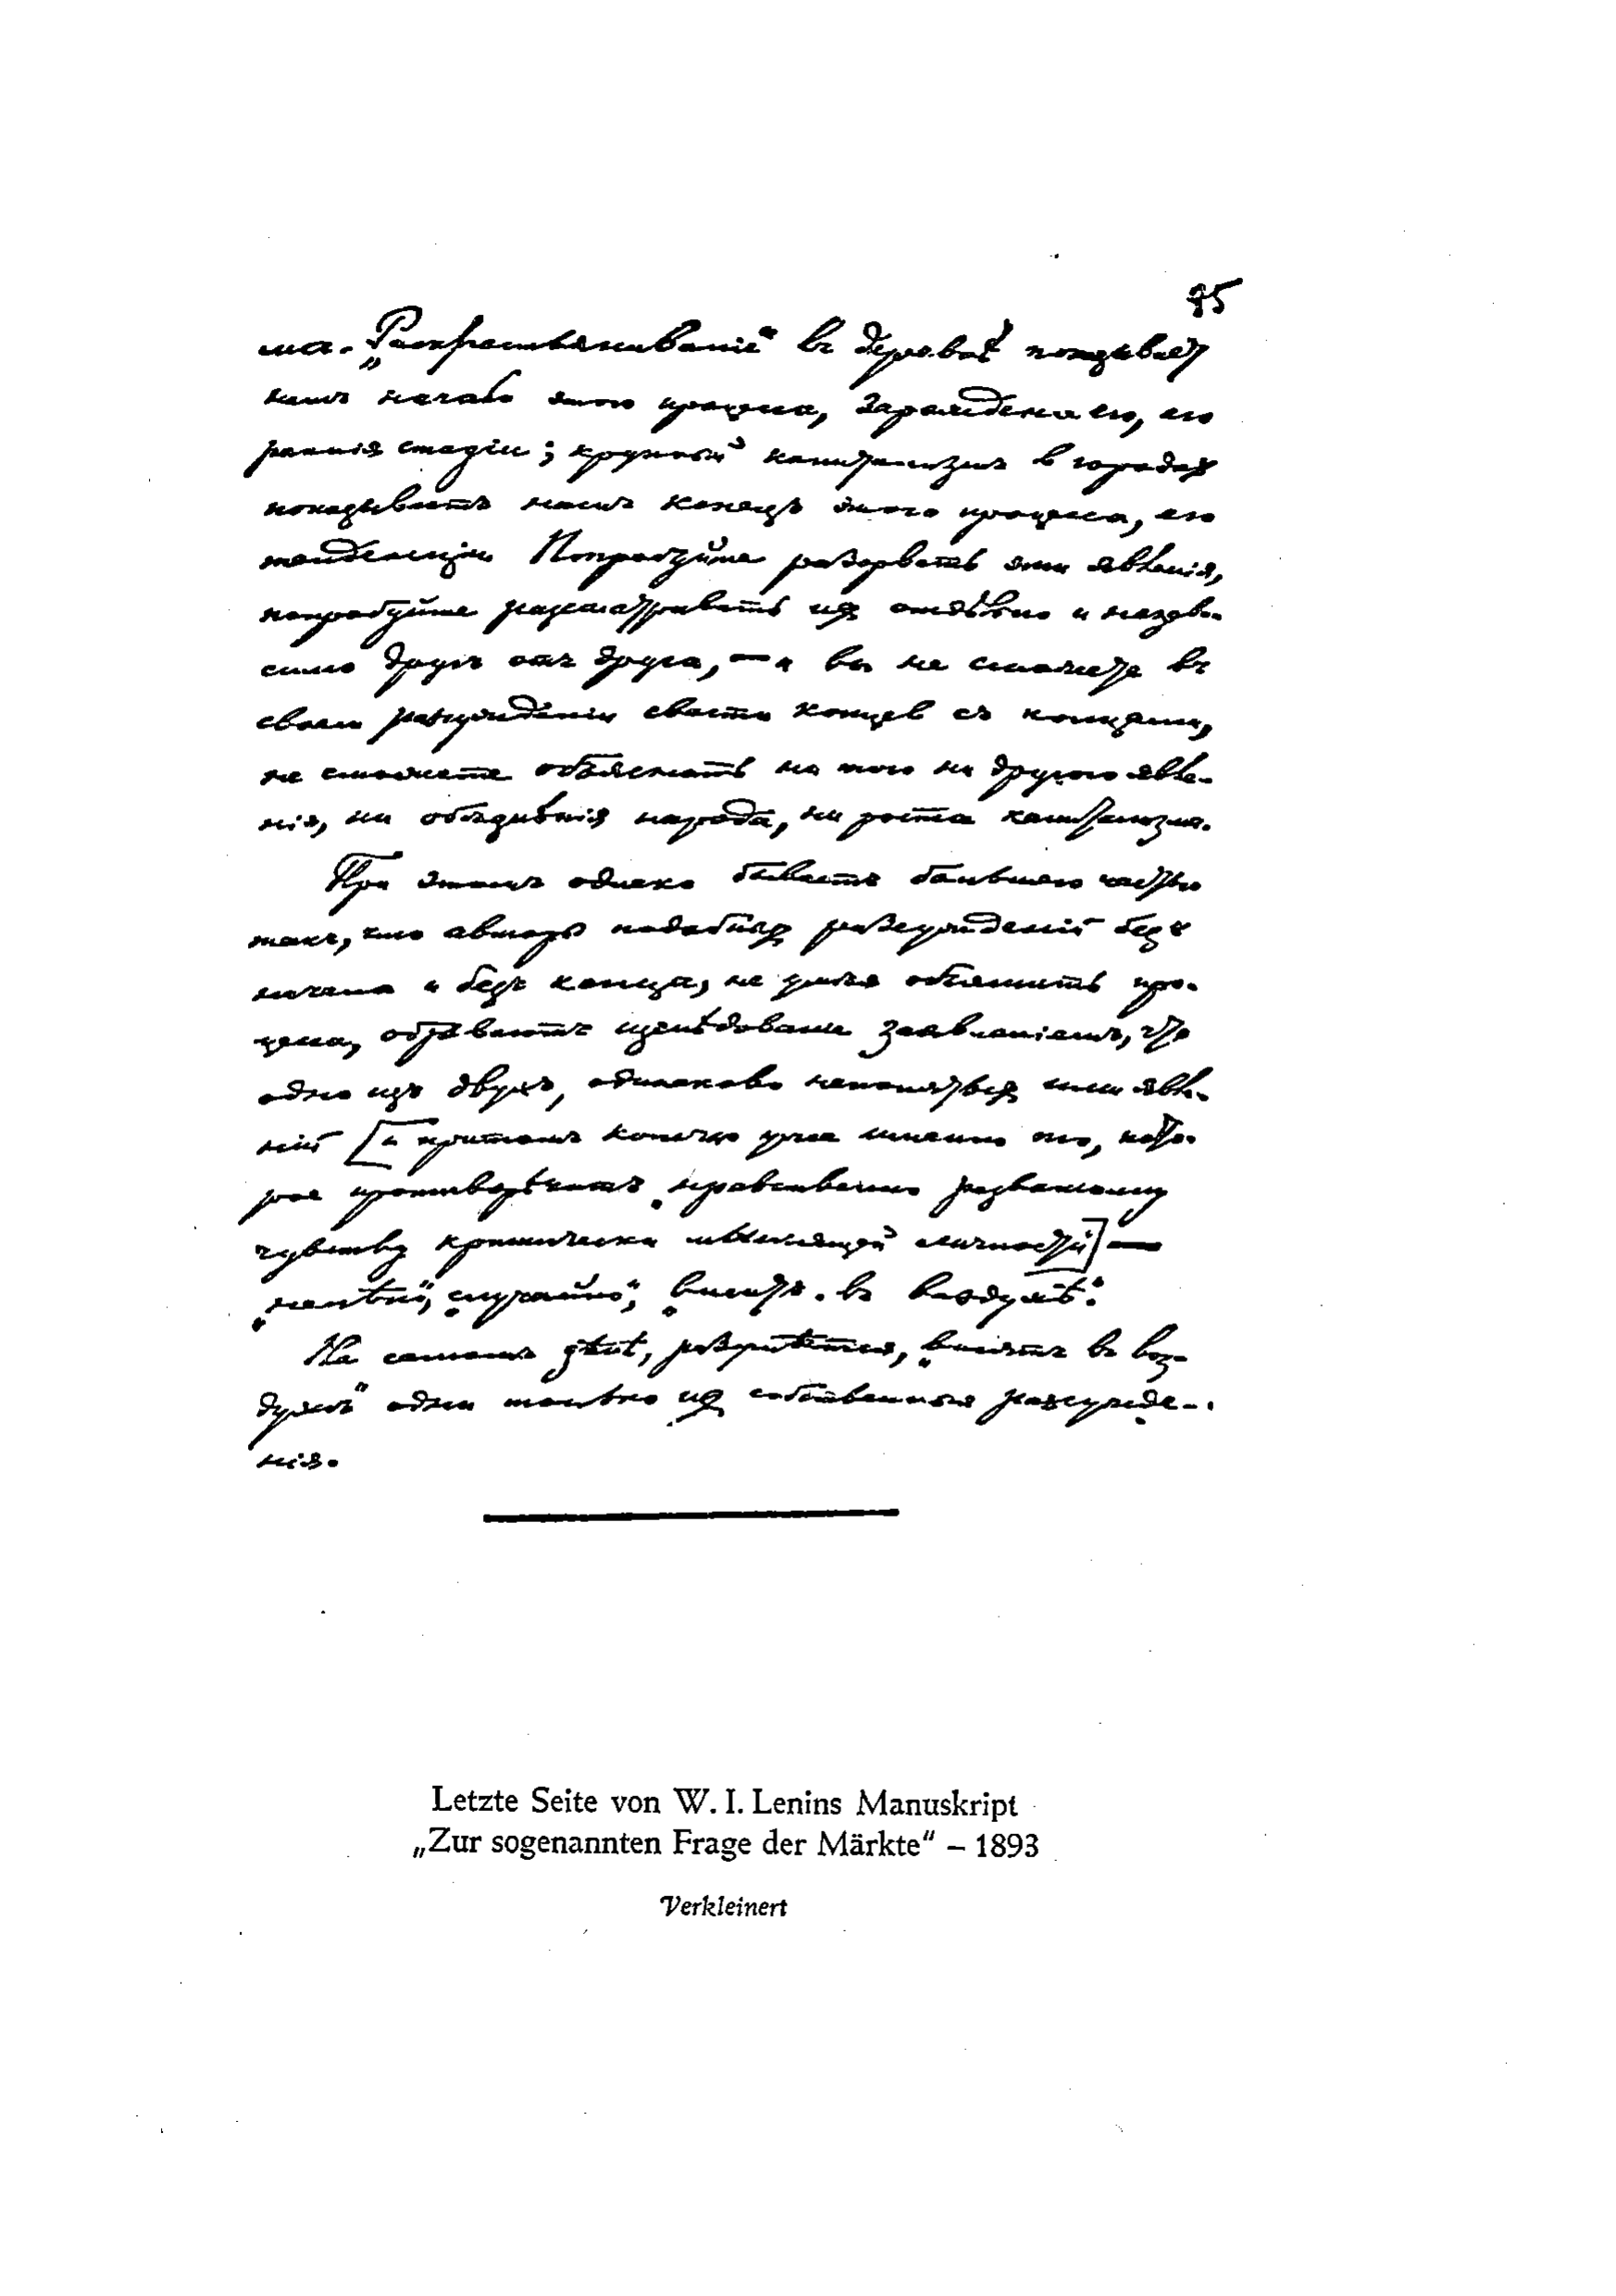 85
ма. „Раскрестьяниванiе“ въ деревнѣ показывает
намъ начало этого процесса, зарожденiе его, его
раннiя стадiи; крупный капитализмъ в городах
показываетъ намъ конецъ этого процесса, его
тенденцiи Попробуйте разорвать эти явленiя,
попробуйте разсматривать их отдѣльно и незави-
симо другъ отъ друга, — и вы не сможете въ
своем разсужденiи свести концов съ концами,
не сможете объяснить ни того ни другого явле-
нiя, ни обѣднѣнiя народа, ни роста капитализма.
При этомъ однако бываетъ большею частью
такъ, что авторы подобных разсужденiй безъ
начала и безъ конца, не умѣя объяснить про-
цесса, обрываютъ изслѣдованiе заявленiемъ, что
одно изъ двухъ, одинаково непонятых ими явле-
нiй [и притомъ конечно уже именно то, кото-
рое противорѣчитъ „нравственно развитому
чувству критически мыслящей личности“] —
„нелѣпо“, „случайно“, „виситъ въ воздухѣ“.
На самомъ дѣлѣ, разумѣется, „висятъ въ воз-
духѣ“ одни только их собственныя разсужде-
нiя.
Letzte Seite von W. I. Lenins Manuskript
„Zur sogenannten Frage der Märkte“ – 1893
Verkleinert